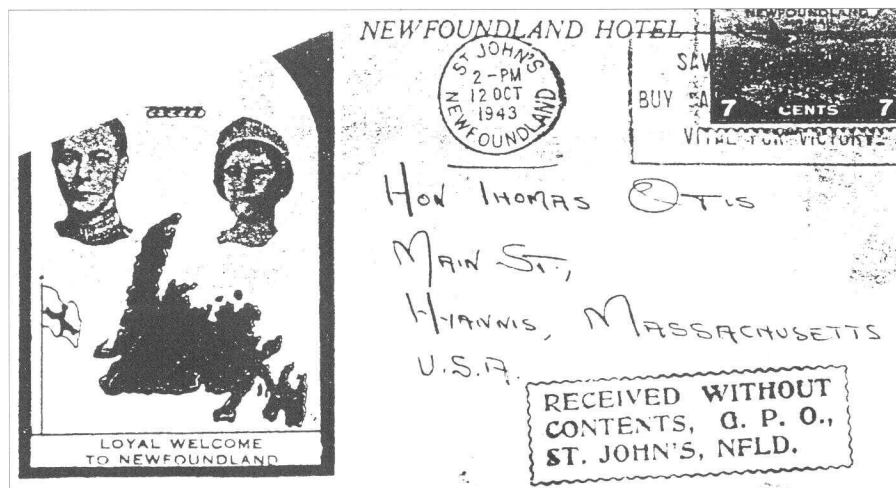 NEWFOUNDLAND HOTEL
ST JOHN'S
2-PM
12 OCT
1943
NEWFOUNDLAND
SAV
BUY
VITAL FOR VICTORY
NEWFOUNDLAND
AIR MAIL
7 CENTS 7
HON THOMAS OTIS
MAIN ST.,
HYANNIS, MASSACHUSETTS
U.S.A.
RECEIVED WITHOUT
CONTENTS, G. P. O.,
ST. JOHN'S, NFLD.
LOYAL WELCOME
TO NEWFOUNDLAND